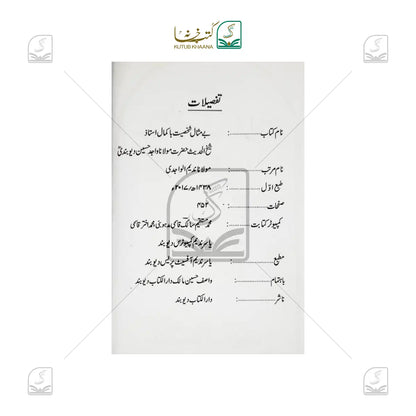 کتب خانہ
KUTUB KHAANA
تفصیلات
نام کتاب ............: بے مثال شخصیت باکمال استاذ
شیخ الحدیث حضرت مولانا واجد حسین دیوبندیؒ
نام مرتب ............: مولانا ندیم الواجدی
طبع اوّل ............: ۱۴۳۸ھ/۲۰۱۷ء
صفحات ............: ۴۵۲
کمپیوٹر کتابت ......: محمد
قاسمی
محمد اختر قاسمی
یاسر ندیم کمپیوٹرس دیوبند
مطبع ............: یاسر ندیم آفسیٹ پریس دیوبند
باہتمام ............: واصف حسین مالک دارالکتاب دیوبند
ناشر ............: دارالکتاب دیوبند